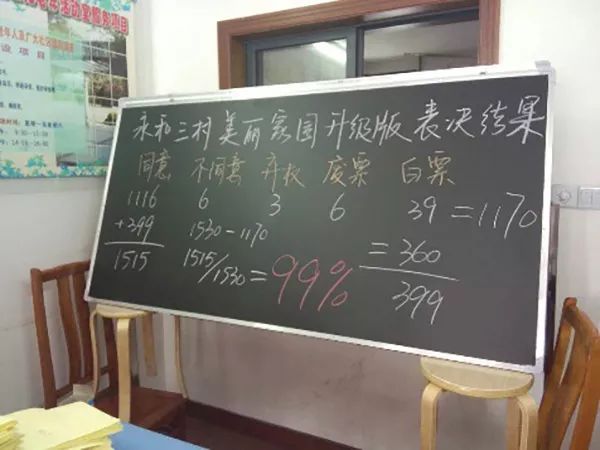 设 项 目
永和三村美丽家园升级版表决结果
同意 不同意 弃权 废票 白票
1116 6 3 6 39=1170
+399 1530-1170 =360
1515 1515/1530=99% 399